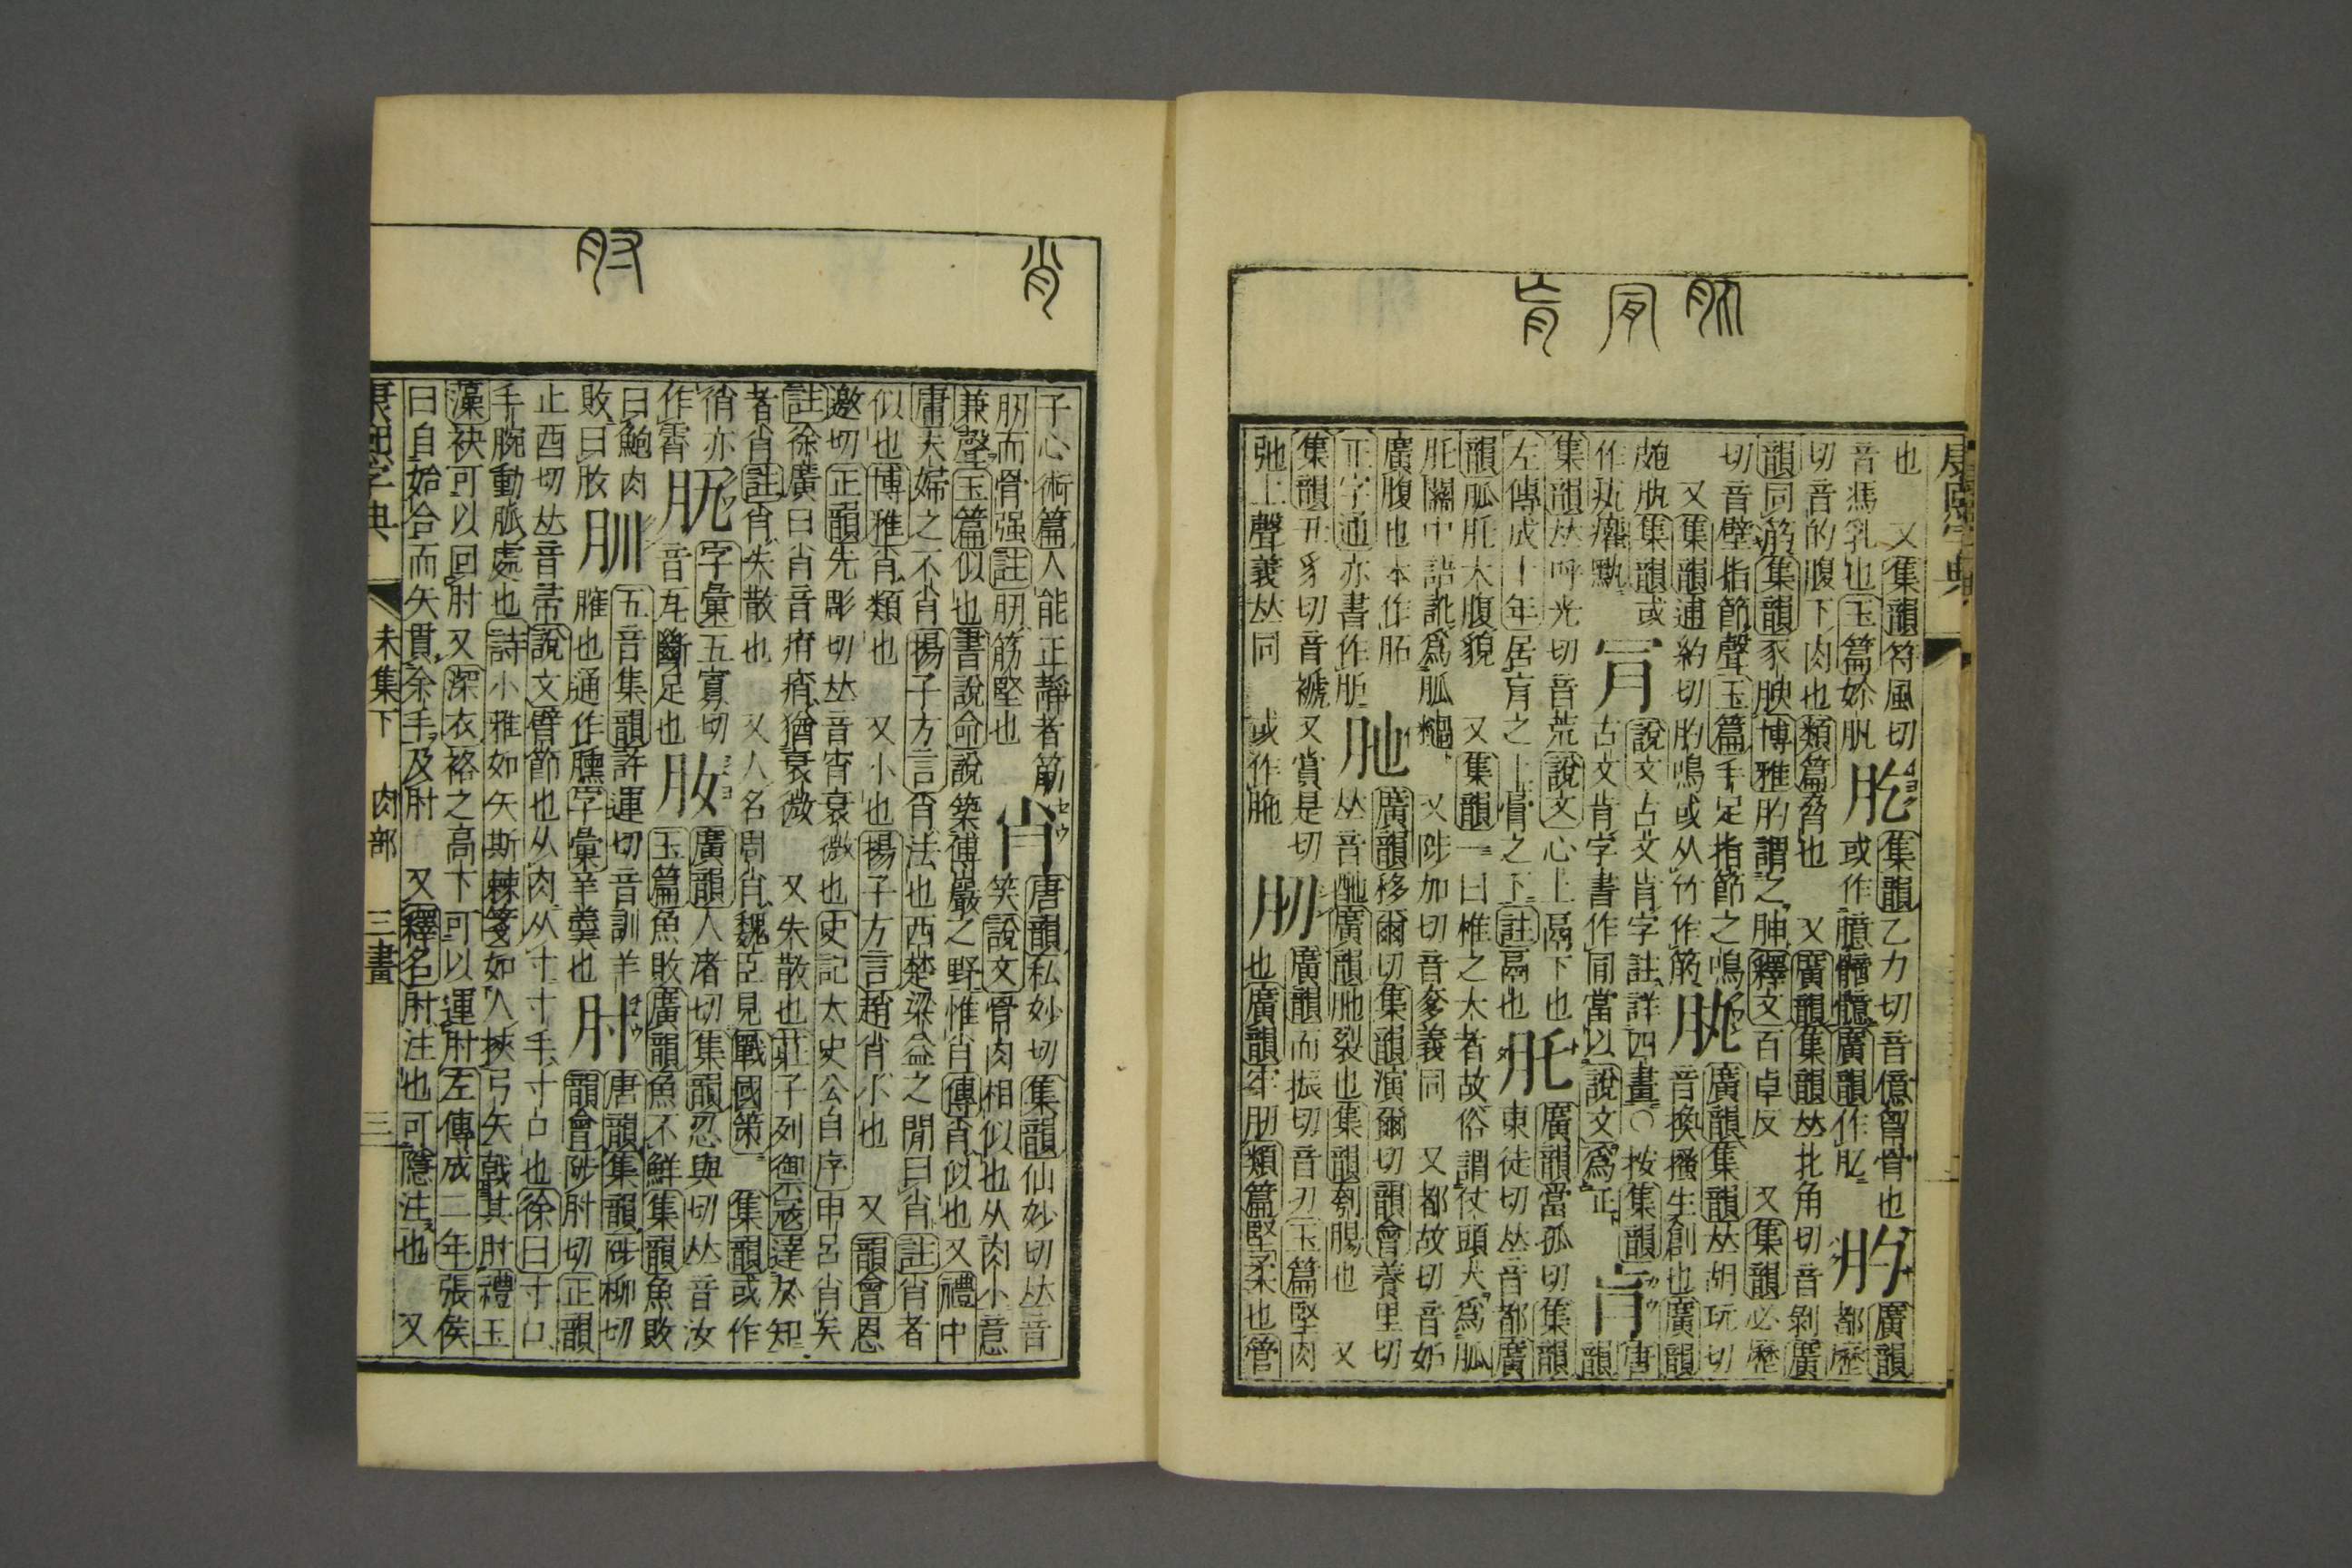 康熙字典
也 又集韻符風切 肊 集韻乙力切音億胷骨也 肑 廣韻
音馮乳也玉篇妳 或作臆 廣韻作肊 都歷
切音的腹下肉也類篇脅也 又廣韻集韻𠀤北角切音剝廣
韻同筋集韻豕腴博雅肑謂之胂釋文百卓反 又集韻必歷
切音壁指節聲玉篇手足指節之鳴 肒 廣韻集韻𠀤胡玩切
又集韻逋約切肑鳴或从竹作筋 音換搔生創也廣韻
皰肒集韻或 肎 說文古文肯字註詳四畫○按集韻 肓 唐
作疻癰 古文肯字書作肎當以說文爲正 韻
集韻𠀤呼光切音荒說文心上鬲下也 肚 廣韻當孤切集韻
左傳成十年居肓之上膏之下註鬲也 東徒切𠀤音都廣
韻胍肚大腹貌 又集韻一曰椎之大者故俗謂仗頭大爲胍
肚關中語訛爲胍檛 又陟加切音奓義同 又都故切音妒
廣腹也本作䏽 肔 廣韻移爾切集韻演爾切韻會養里切
正字通亦書作胣 𠀤音酏廣韻肔裂也集韻刳腸也 又
集韻丑豸切音褫又賞是切 肕 廣韻而振切音刃玉篇堅肉
弛上聲義𠀤同 或作胣 也廣韻牢肕類篇堅柔也管
子心術篇人能正靜者筋 肖 唐韻私妙切集韻仙妙切𠀤音
肕而骨强註肕筋堅也 笑說文骨肉相似也从肉小意
兼聲玉篇似也書說命說築傅巖之野惟肖傳肖似也又禮中
庸夫婦之不肖揚子方言肖法也西楚梁益之閒曰肖註肖者
似也博雅肖類也 又小也揚子方言趙肖小也 又韻會思
邀切正韻先彫切𠀤音宵衰微也史記太史公自序申呂肖矣
註徐廣曰肖音痟痟猶衰微 又失散也莊子列禦寇達於知
者肖註肖失散也 又人名周肖魏臣見戰國策 集韻或作
俏亦 𦘺 字彙五寡切 肗 廣韻人渚切集韻忍與切𠀤音汝
作霄 音瓦斷足也 玉篇魚敗廣韻魚不鮮集韻魚敗
曰鮑肉 𦘴 五音集韻許運切音訓羊 肘 唐韻集韻陟柳切
敗曰肗 臛也通作臐字彙羊羹也 韻會陟肘切正韻
止酉切𠀤音帚說文臂節也从肉从寸寸手寸口也徐曰寸口
手腕動脈處也詩小雅如矢斯棘箋如人挾弓矢戟其肘禮玉
藻袂可以回肘又深衣袼之高下可以運肘左傳成二年張侯
曰自始合而矢貫余手及肘 又釋名肘注也可隱注也 又
康熙字典 未集下 肉部 三畫 三